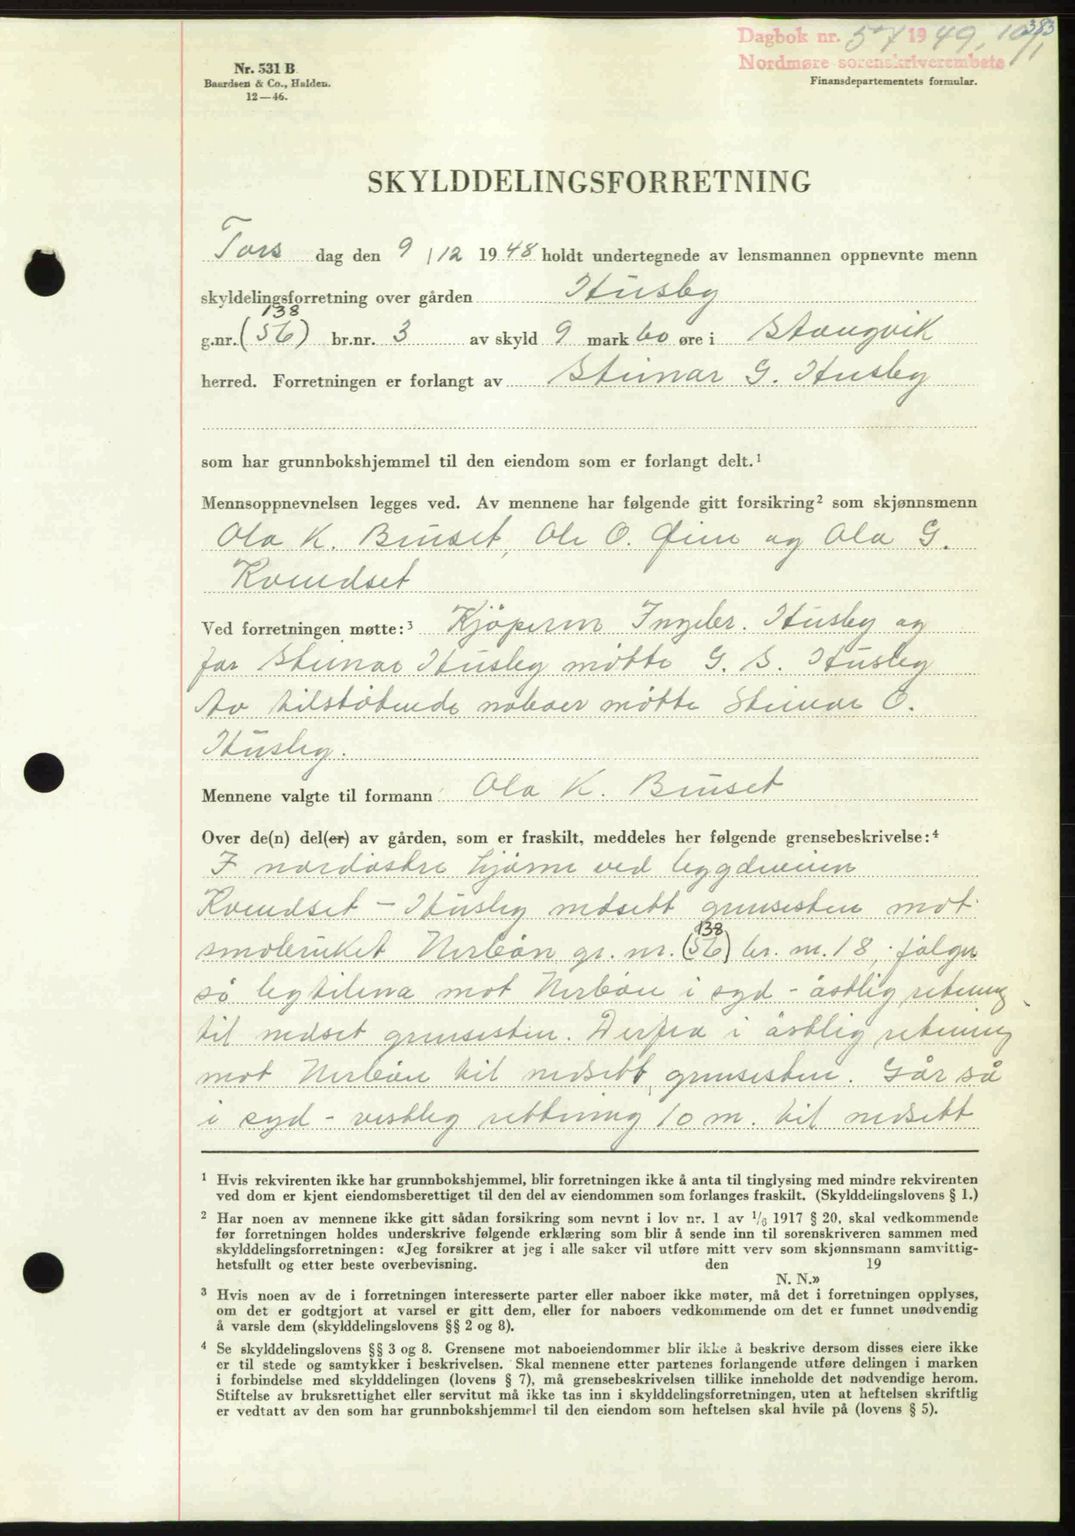 383
Dagbok nr. 57 1949, 10/1
Nordmøre sorenskriverembete
Nr. 531 B
Baardsen & Co., Halden.
12—46.
Finansdepartementets formular.
SKYLDDELINGSFORRETNING
Tors dag den 9/12 1948 holdt undertegnede av lensmannen oppnevnte menn
skyldelingsforretning over gården Husby
138
g.nr. (56) br.nr. 3 av skyld 9 mark 60 øre i Stangvik
herred. Forretningen er forlangt av Steinar G. Husby
som har grunnbokshjemmel til den eiendom som er forlangt delt.¹
Mennsoppnevnelsen legges ved. Av mennene har følgende gitt forsikring² som skjønnsmenn
Ola K. Bruset, Ole O. Øien og Ola G.
Kvendset
Ved forretningen møtte:³ Kjøperen Ingebr. Husby og
for Steinar Husby møtte G. S. Husby
Av tilstøtende naboer møtte Steinar O.
Husby.
Mennene valgte til formann Ola K. Bruset
Over de(n) del(er) av gården, som er fraskilt, meddeles her følgende grensebeskrivelse:⁴
I nordøstre hjørne ved bygdeveien
Kvendset – Husby nedsett grensesten mot
138
småbruket Nerbøen gr. nr. (56) br. nr. 18, følger
så bytilina mot Nerbøen i syd - østlig retning
til nedset grensesten. Derfra i østlig retning
mot Nerbøen til nedsett grensesten. Går så
i syd - vestlig rettning 10 m. til nedsett
¹ Hvis rekvirenten ikke har grunnbokshjemmel, blir forretningen ikke å anta til tinglysing med mindre rekvirenten
ved dom er kjent eiendomsberettiget til den del av eiendommen som forlanges fraskilt. (Skylddelingslovens § 1.)
² Har noen av mennene ikke gitt sådan forsikring som nevnt i lov nr. 1 av 1/6 1917 § 20, skal vedkommende
før forretningen holdes underskrive følgende erklæring som blir å sende inn til sorenskriveren sammen med
skylddelingsforretningen: «Jeg forsikrer at jeg i alle saker vil utføre mitt verv som skjønnsmann samvittig-
hetsfullt og etter beste overbevisning. den 19
N. N.»
³ Hvis noen av de i forretningen interesserte parter eller naboer ikke møter, må det i forretningen opplyses,
om det er godtgjort at varsel er gitt dem, eller for naboers vedkommende om det er funnet unødvendig
å varsle dem (skylddelingslovens §§ 2 og 8).
⁴ Se skylddelingslovens §§ 3 og 8. Grensene mot naboeiendommer blir ikke å beskrive dersom disses eiere ikke
er til stede og samtykker i beskrivelsen. Skal mennene etter partenes forlangende utføre delingen i marken
i forbindelse med skylddelingen (lovens § 7), må grensebeskrivelsen tillike inneholde det nødvendige herom.
Stiftelse av bruksrettighet eller servitut må ikke tas inn i skylddelingsforretningen, uten at heftelsen skriftlig
er vedtatt av den som har grunnbokshjemmel til den eiendom som heftelsen skal hvile på (lovens § 5).